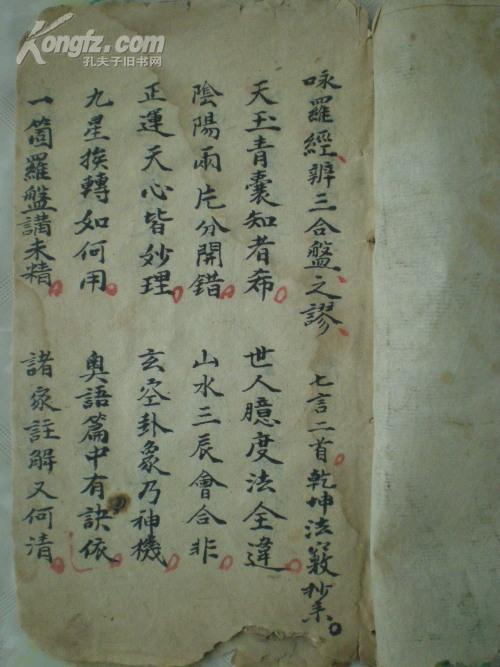 Kongfz.com
孔夫子旧书网
咏羅經辨三合盤之謬 七言二首乾坤法竅抄录
天玉青囊知者希 世人臆度法全違
陰陽兩片分開錯 山水三辰會合非
正運天心皆妙理 玄空卦象乃神機
九星挨轉如何用 奧語篇中有訣依
一箇羅盤講未精 諸家註解又何清